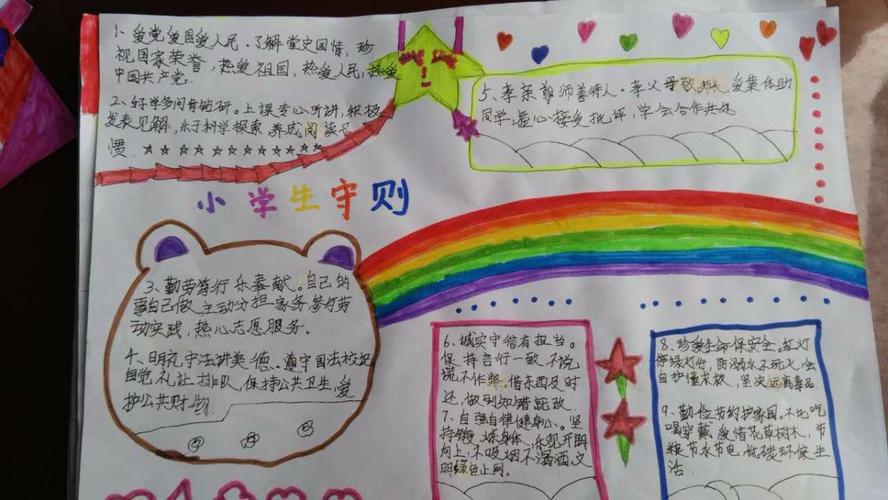 1、爱党爱国爱人民。了解党史国情，珍
视国家荣誉，热爱祖国，热爱人民，热爱
中国共产党。
2、好学多问肯钻研。上课专心听讲，积极
发表见解，乐于科学探索，养成阅读习
惯。
5、孝亲尊师善待人。孝父母敬师长，爱集体助
同学，虚心接受批评，学会合作共处
小学生守则
3、勤劳笃行乐奉献。自己的
事自己做，主动分担家务，参与劳
动实践，热心志愿服务。
4、明礼守法讲美德。遵守国法校纪
自觉礼让排队，保持公共卫生，爱
护公共财物
6、诚实守信有担当。
保持言行一致，不说
谎不作弊，借东西及时
还，做到知错就改
7、自强自律健身心。坚
持锻炼身体，乐观开朗
向上，不吸烟不喝酒，文
明绿色上网。
8、珍爱生命保安全。红灯
停绿灯行，防溺水不玩火，会
自护懂求救，坚决远离毒品
9、勤俭节约护家园，不比吃
喝穿戴，爱惜花草树木，节
粮节水节电，低碳环保生
活